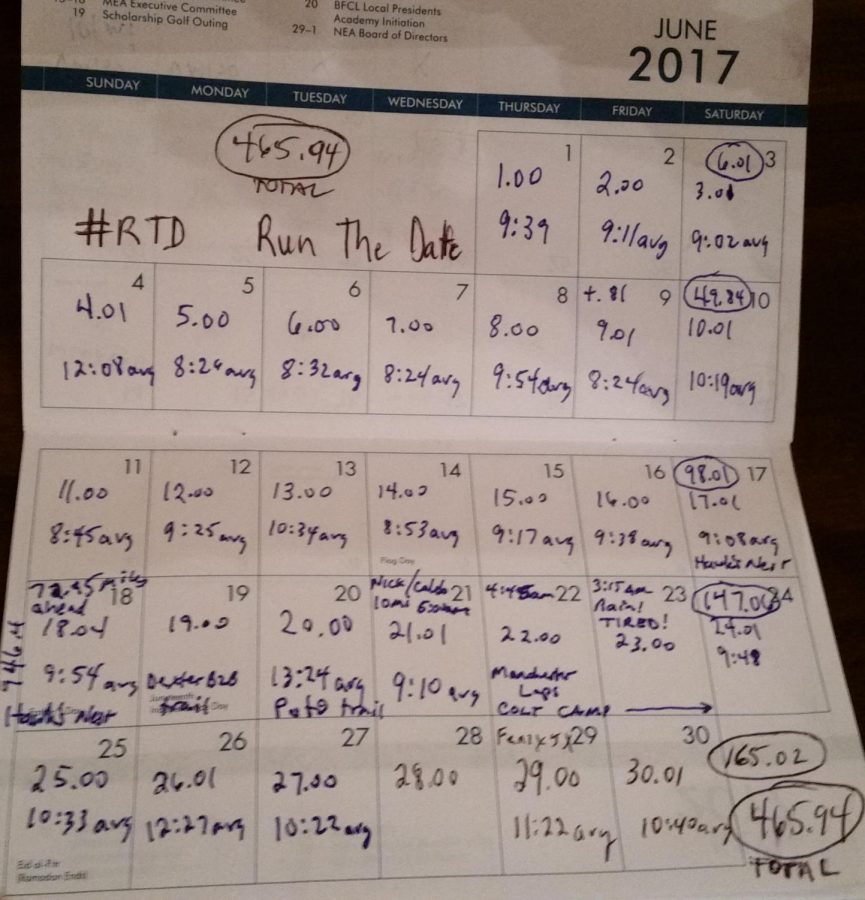 MEA Executive Committee
19 Scholarship Golf Outing
20 BFCL Local Presidents
Academy Initiation
29-1 NEA Board of Directors
JUNE
2017
SUNDAY MONDAY TUESDAY WEDNESDAY THURSDAY FRIDAY SATURDAY
465.94
TOTAL
#RTD Run The Date
1 2 6.01 3
1.00 2.00 3.01
9:39 9:11 avg 9:02 avg
4 5 6 7 8 +.81 9 49.84 10
4.01 5.00 6.00 7.00 8.00 9.01 10.01
12:08 avg 8:24 avg 8:32 avg 8:24 avg 9:54 avg 8:24 avg 10:19 avg
11 12 13 14 15 16 98.01 17
11.00 12.00 13.00 14.00 15.00 16.00 17.01
8:45 avg 9:25 avg 10:34 avg 8:53 avg 9:17 avg 9:38 avg 9:08 avg
Flag Day
Hawks Nest
ahead
18 19 20 Nick/Caleb 21 4:45am 22 3:15am 23 147.06 24
Rain!
TIRED!
18.04 19.00 20.00 21.01 22.00 23.00 24.01
9:54 avg Dexter B2B 13:24 avg 9:10 avg Manchester 9:48
Hawks Nest trail Poto trail Laps
COLT CAMP
25 26 27 28 Fenix 5x 29 30 165.02
25.00 26.01 27.00 28.00 29.00 30.01
10:33 avg 12:27 avg 10:22 avg 11:22 avg 10:40 avg 465.94
TOTAL
Eid al-Fitr
Ramadan Ends